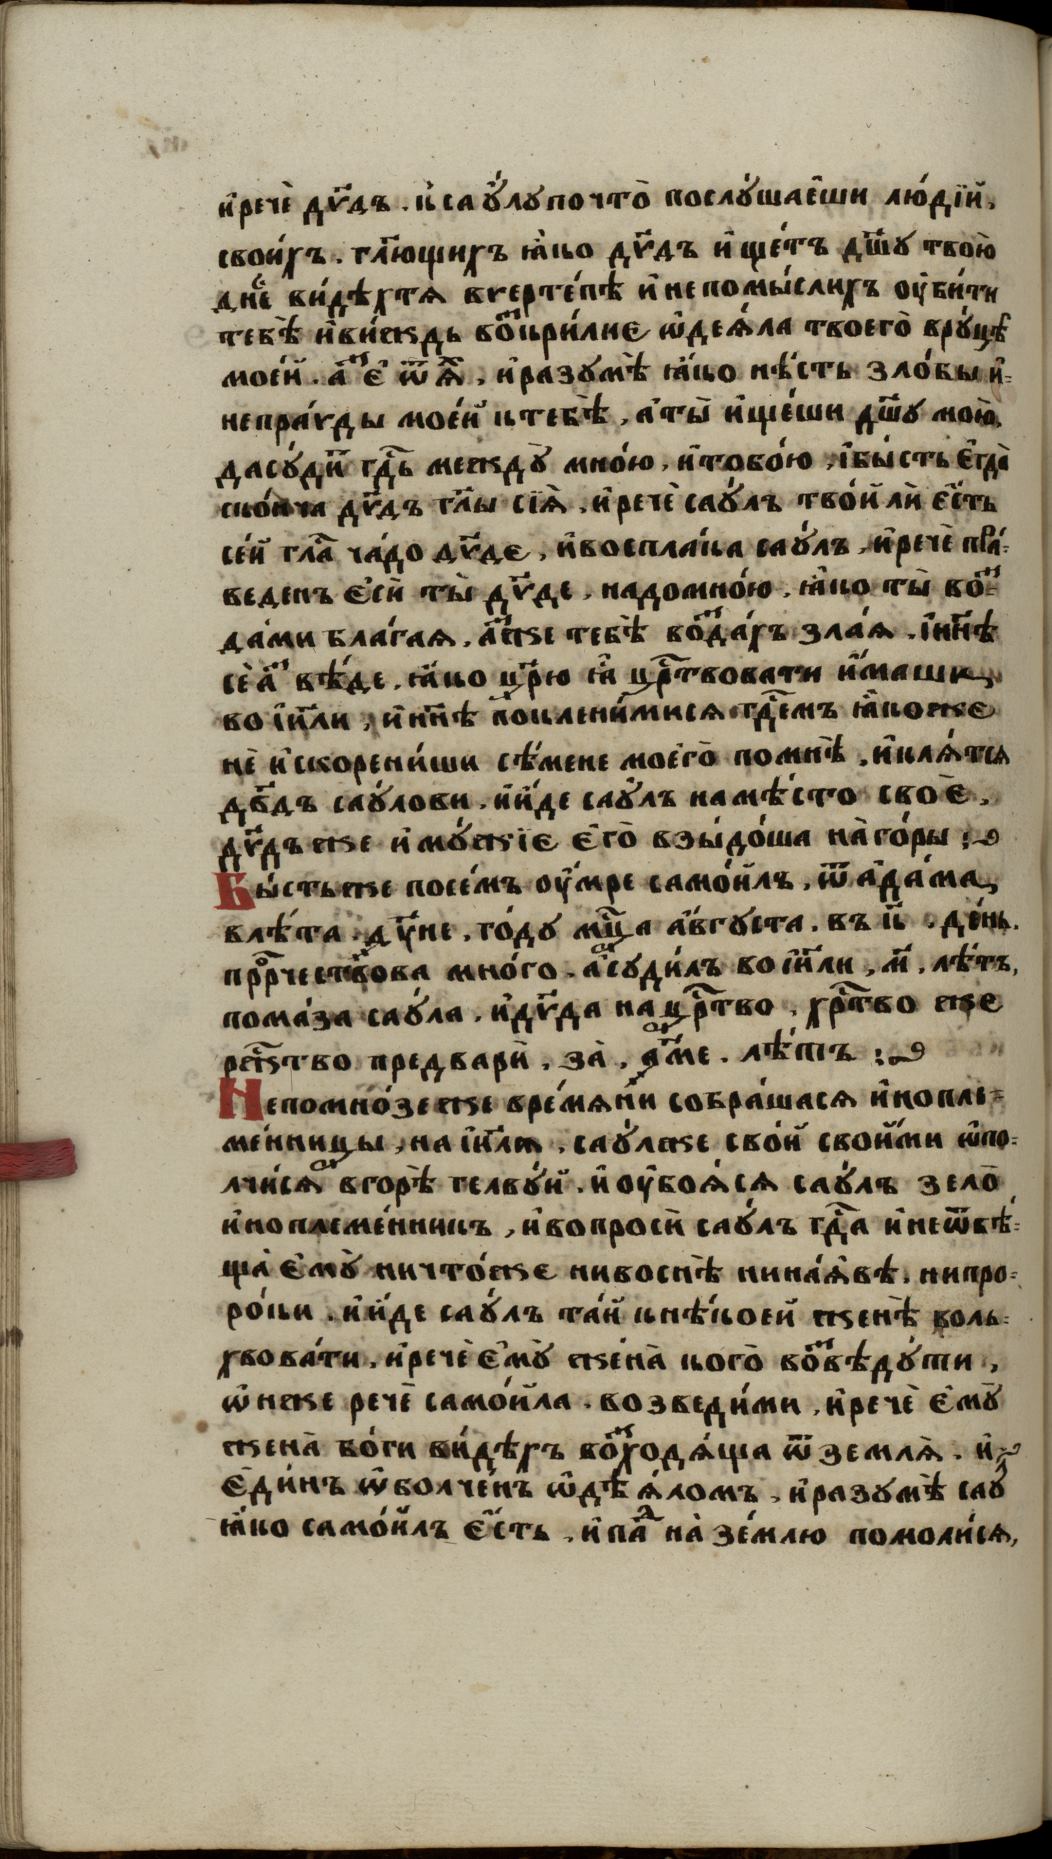 и҆речѐ дв҃дъ . к҆са ꙋ҆́лꙋ почто̀ послꙋ́шаеши лю́дїй .
свои́хъ . гл҃ющихъ ꙗ҆ко дв҃дъ и҆ще́тъ дш҃ꙋ твою̀
дне́с ви́дѣхтѧ вверте́пѣ и҆непомы́слихъ оу҆би́ти
тебѐ и҆ви́ждь воскри́лие ѡ҆деѧ́ла твоего̀ врꙋ́цѣ
моей . и҆разꙋмѣ̀ ꙗ҆́ко нѣ́сть зло́бы и҆=
непра́вды мое́й ктебѣ̀ , а҆ты̀ и҆́щеши дш҃ꙋ мою̀,
дасꙋ́ди гд҃ь междꙋ̀ мно́ю , и҆тобо́ю , і҆бы́сть є҆гда̀
сконча дв҃дъ гл҃ы сїѧ̀ . и҆речѐ саꙋ́лъ тво́й ли є҆́сть
се́й гла́с ча́до дв҃де , и҆восплака саꙋ́лъ , и҆речѐ пра́=
веденъ є҆сѝ ты̀ дв҃де , надомно́ю , ꙗ҆́ко ты̀ воз=
да́ми благаѧ , а҆зже тебѣ̀ возда́хъ зла́ѧ . і҆нн҃ѣ
сѐ а҆з вѣ́де . ꙗ҆́ко цр҃ю ꙗ҆ цр҃твовати и҆́маши
во і҆и҃ли , и҆нн҃ѣ поклени́мисѧ гд҃емъ ꙗ҆́коже
нѐ и҆скорени́ши сѣ́мене моего̀ помнѣ̀ . и҆клѧ́тсѧ
дв҃дъ саꙋ́лови . и҆и҆́де саꙋ́лъ намѣ́сто своѐ .
дв҃дъ же и҆мꙋ́жїе є҆го̀ взыдо́ша на̀ го́ры :
Бы́стьже посе́мъ оу҆́мре само́илъ , ѿ а҆да́ма
влѣ́та . ҂двн҃е . го́дꙋ мц҃а а҆́вгꙋста . въ к҃ . де́нь .
прⷪ҇рчествова мно́го . а҆сꙋди́лъ во і҆и҃ли , м҃ , лѣ́тъ ,
пома́за саꙋ́ла . и҆дв҃да на цр҃тво , хр҃тво же
рж҃ство предварѝ , за̀ , ҂а҃ме . лѣ́тъ :
Непомно́зеже вре́мѧни собра́шасѧ и҆нопле=
ме́нницы , на і҆и҃лѧ , саꙋ́лже сво́й свои́ми ѡ҆по=
лчи́сѧ вгорѣ̀ гелвꙋ́й . и҆ оу҆боѧ́сѧ саꙋ́лъ зело̀
и҆ноплеме́нникъ , и҆вопросѝ саꙋ́лъ гд҃а и҆неѿвѣ=
ща є҆мꙋ̀ ничто́же нивоснѣ̀ нина́ѧвѣ . нипро=
ро́ки . и҆и҆́де саꙋ́лъ та́й кнѣ́коей женѣ̀ воль=
хвова́ти . и҆речѐ є҆мꙋ̀ жена̀ кого̀ возведꙋ́ти ,
ѡ҆нже речѐ само́ила . возведи́ми , и҆речѐ є҆мꙋ̀
жена̀ бо́ги ви́дѣхъ восходѧ́ща ѿ землѧ̀ . и҆
є҆ди́нъ ѡ҆болче́нъ ѡ҆дѣѧ́ломъ , и҆разꙋмѣ̀ саꙋл
ꙗ҆́ко само́илъ є҆́сть , и҆пад на̀ зе́млю помоли́сѧ ,